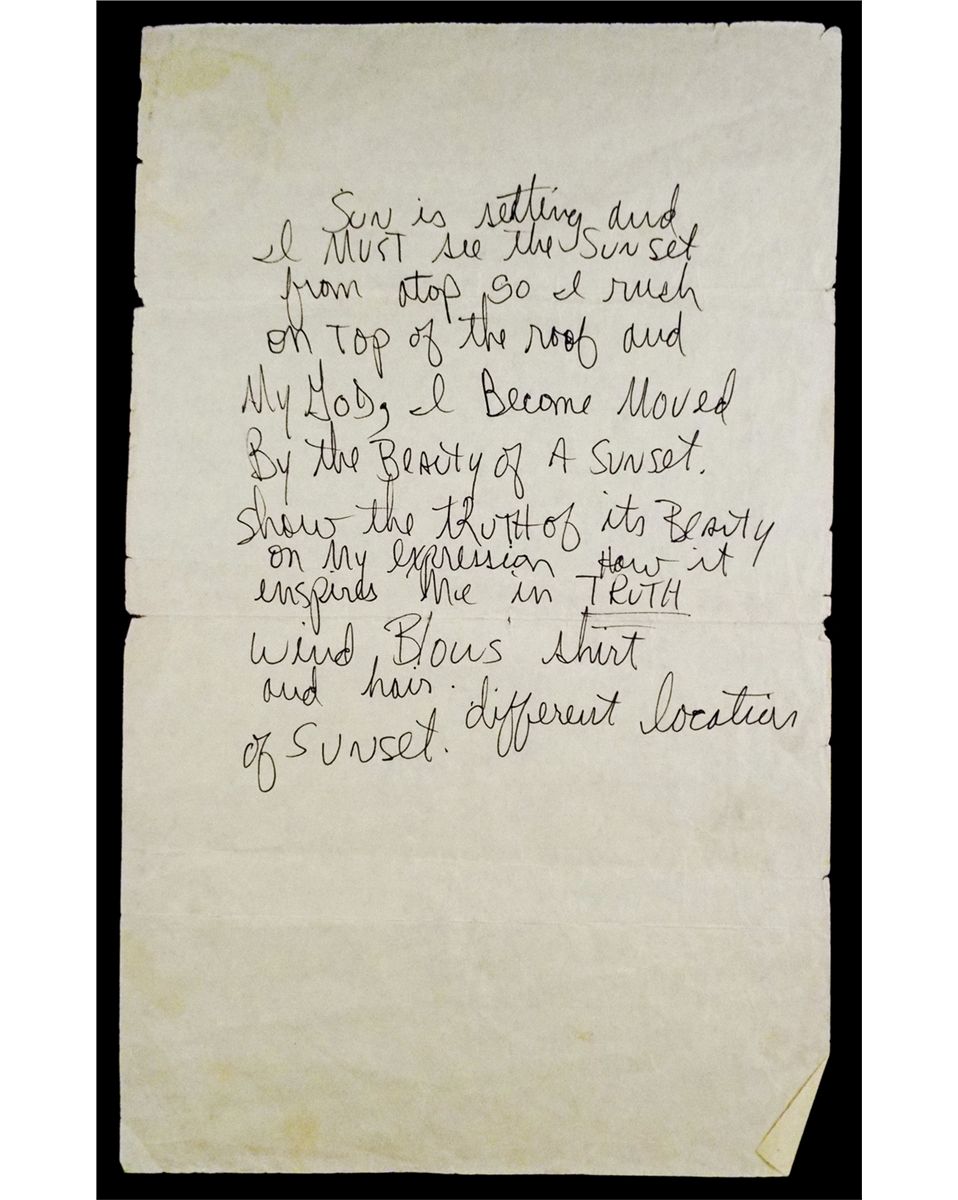 Sun is setting and
I MUST see the Sunset
from atop so I rush
on Top of the roof and
My GoD, I Become Moved
By the Beauty of A Sunset.
show the tRuTH of its Beauty
on My expression How it
enspires Me in TRUTH
wind Blows shirt
and hair. different location
of Sunset.